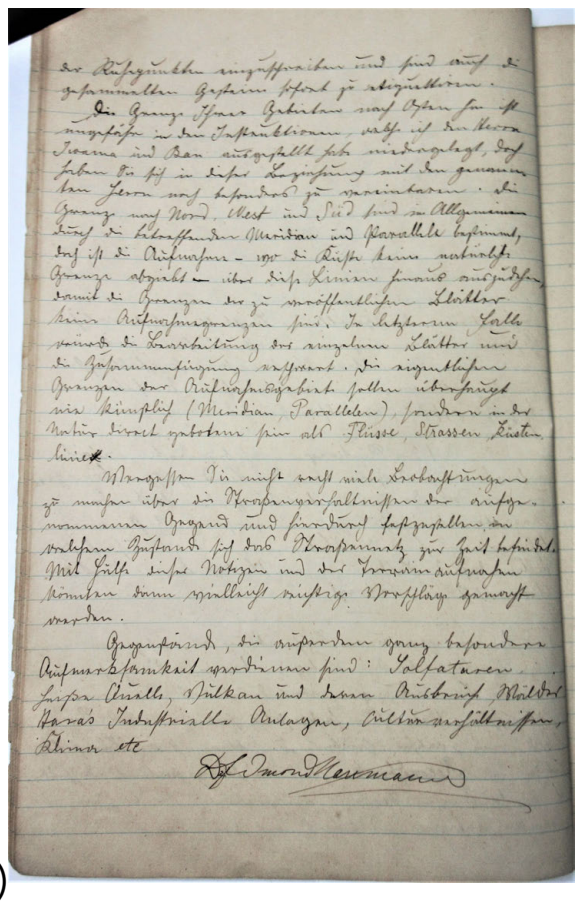 der Ruhepunkten einzuschreiben und sind auch die
gesammelten Gesteine sofort zu etiquettiren.
Die Grenze Ihres Gebietes nach Osten hin ist
ungefähr in den Instruktionen, welche ich den Herren
und Ban ausgestellt habe niedergelegt, doch
haben Sie sich in dieser Beziehung mit den genann-
ten Herrn noch besonders zu vereinbaren. Die
Grenze nach Nord, West und Süd sind im Allgemeinen
durch die betreffenden Meridian und Parallele bestimmt,
doch ist die Aufnahme – wo die Küste keine natürliche
Grenze abgiebt – über diese Linien hinaus auszudehnen,
damit die Grenzen der zu veröffentlichen Blätter
keine Aufnahmegrenzen sind. In letzterem Falle
würde die Bearbeitung der einzelnen Blätter und
die Zusammenfügung erschwert. Die eigentlichen
Grenzen der Aufnahmsgebiete sollen überhaupt
nie künstlich (Meridian, Parallelen), sondern in der
Natur direct gebotene sein als Flüsse, Strassen, Küsten
linie.
Vergessen Sie nicht recht viele Beobachtungen
zu machen über die Straßenverhältnissen der aufge-
nommenen Gegend und hierdurch festzustellen in
welchem Zustande sich das Straßennetz zur Zeit befindet.
Mit Hülfe dieser Notizen und der Terrainaufnahmen
könnten dann vielleicht wichtige Vorschläge gemacht
werden.
Gegenstände, die außerdem ganz besondere
Aufmerksamkeit verdienen sind: Solfataren
heiße Quelle, Vulkan und deren Ausbrüch, Wälder
Hara's Industrielle Anlagen, Culturverhältnissen,
Klima etc
Dr Edmond Naumann